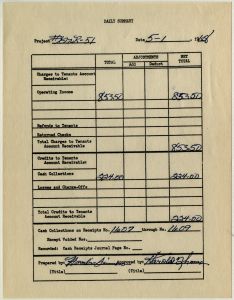 DAILY SUMMARY
Project Date 5-1 1968
TOTAL ADJUSTMENTS NET TOTAL
Add Deduct
Charges to Tenants Account Receivable:
Operating Income 853.50 853.50
Refunds to Tenants
Returned Checks
Total Charges to Tenants Account Receivable 853.50
Credits to Tenants Account Receivable:
Cash Collections 224.00 224.00
Losses and Charge-Offs
Total Credits to Tenants Account Receivable 224.00
Cash Collections on Receipts No. 1607 through No. 1609
Except Voided Nos.
Recorded: Cash Receipts Journal Page No.
Prepared by: Approved by: Harold
(Title) (Title)